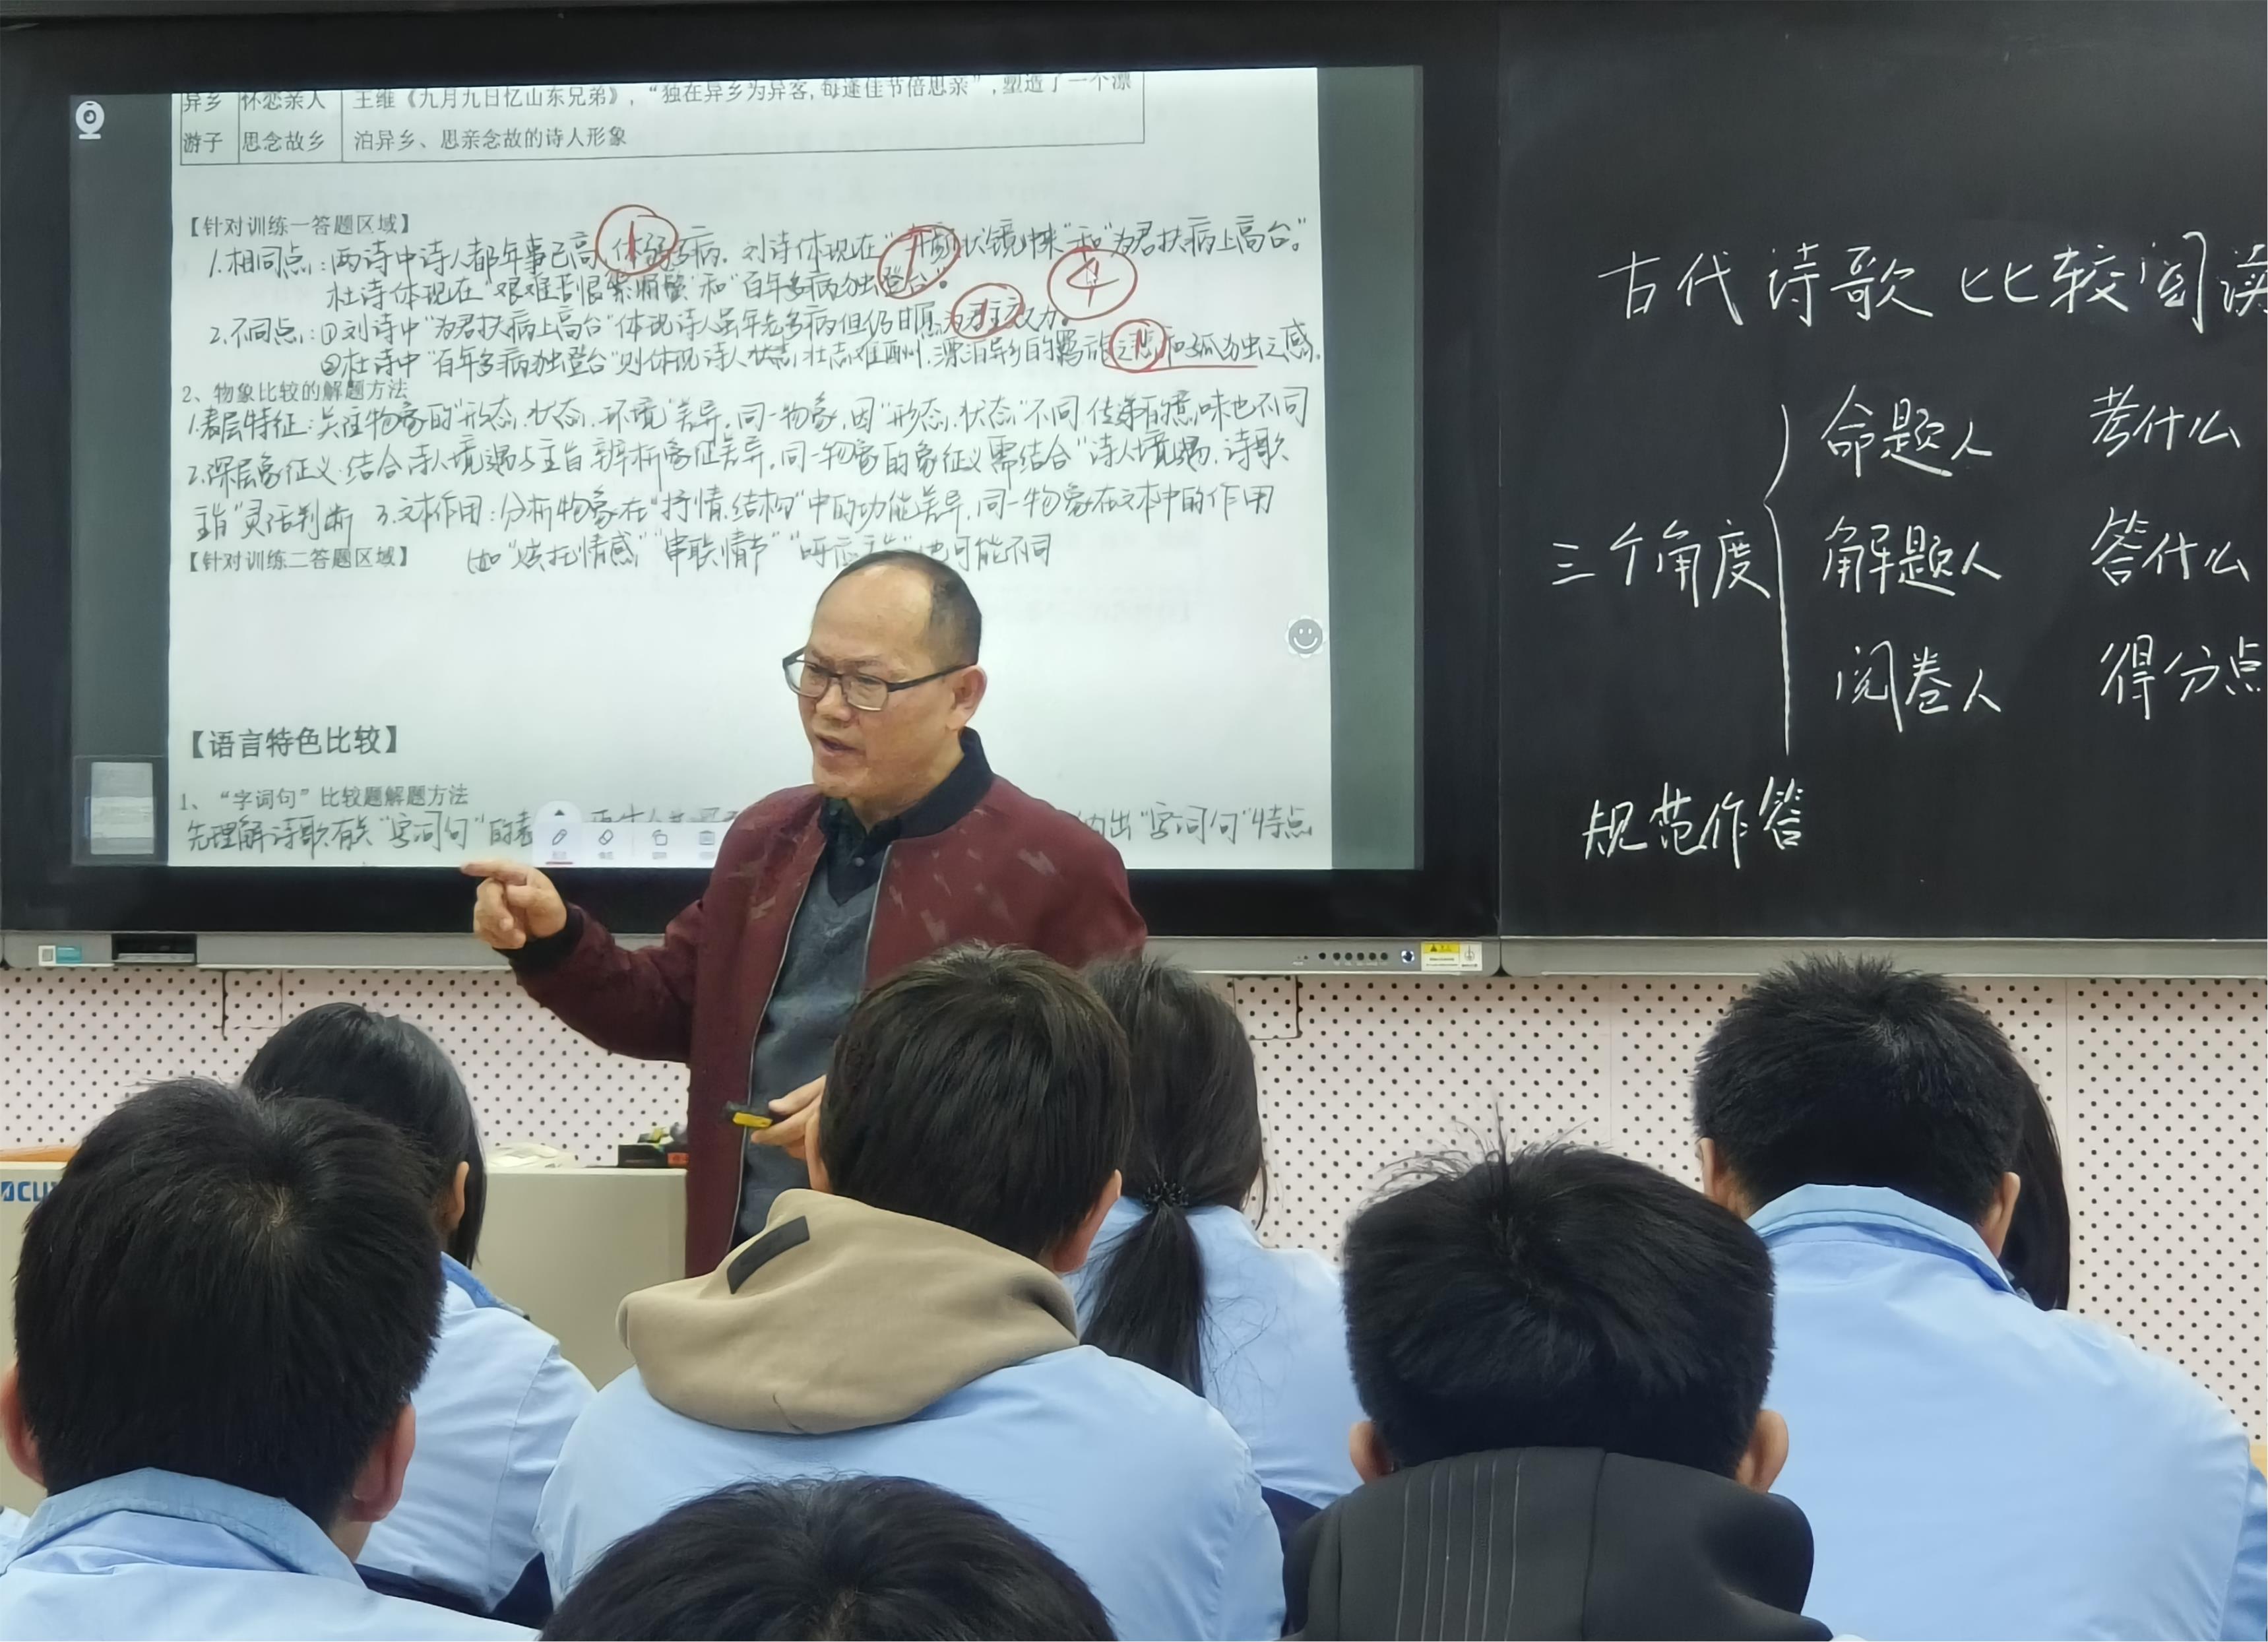 异乡 怀恋亲人 王维《九月九日忆山东兄弟》，“独在异乡为异客，每逢佳节倍思亲”，塑造了一个漂
游子 思念故乡 泊异乡、思亲念故的诗人形象
【针对训练一答题区域】
1.相同点：两诗中诗人都年事已高，体弱多病．刘诗体现在“ 状镜中来”和“为君扶病上高台。”
杜诗体现在“艰难苦恨繁霜鬓”和“百年多病独登台”。
2.不同点：①刘诗中“为君扶病上高台”体现诗人虽年老多病但仍 为君主效力。
②杜诗中“百年多病独登台”则体现诗人 壮志难酬，漂泊异乡的羁旅之悲和孤独之感．
1 1 4 1 1
2、物象比较的解题方法
1.表层特征：关注物象的“形态．状态．环境”差异．同一物象，因“形态．状态”不同 传递的意味也不同
2.深层象征义：结合诗人境遇与主旨辨析象征差异，同一物象的象征义需结合“诗人境遇．诗歌
主旨”灵活判断 3.文本作用：分析物象在“抒情．结构”中的功能差异．同一物象在文本中的作用
【针对训练二答题区域】 (如“烘托情感”“串联情节” 也可能不同
【语言特色比较】
1、“字词句”比较题解题方法
先理解诗歌有关“字词句”的 出“字词句”特点
古代诗歌比较阅读
三个角度
命题人 考什么
解题人 答什么
阅卷人 得分点
规范作答